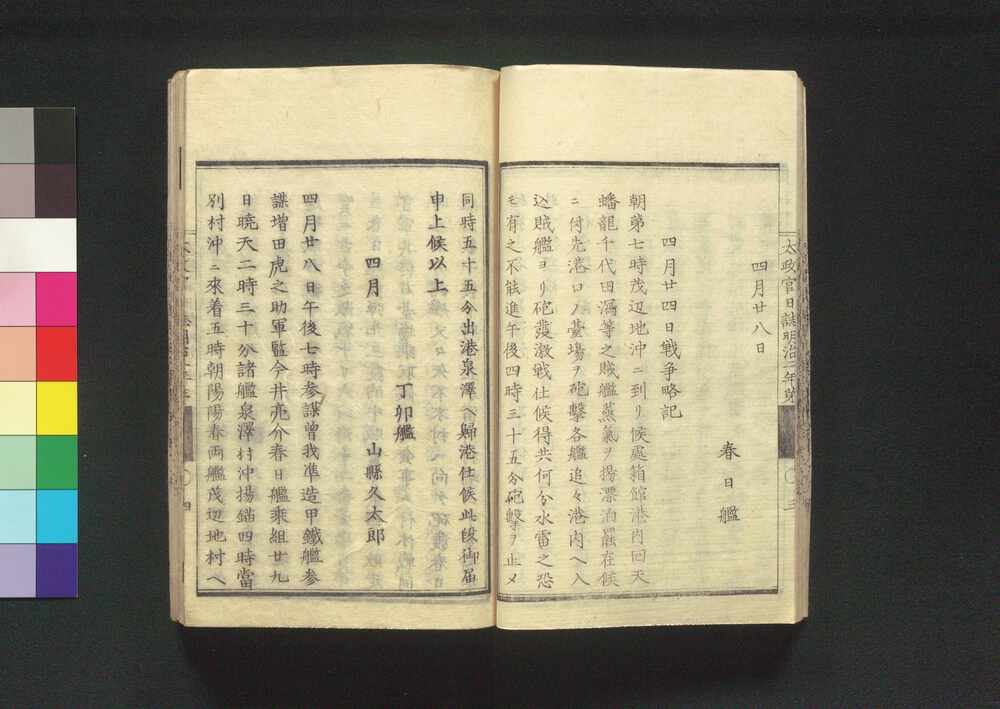 太政官日誌明治二年第
三
四月廿八日
春日艦
四月廿四日戦争略記
朝第七時茂辺地沖ニ到リ候處箱館港内回天
蟠龍千代田瀉等之賊艦蒸氣ヲ揚漂泊罷在候
ニ付先港口ノ臺場ヲ砲撃各艦追々港内ヘ入
込賊艦ヨリ砲發激戦仕候得共何分水雷之恐
モ有之不能進午後四時三十五分砲撃ヲ止メ
同時五十五分出港泉澤ヘ歸港仕候此段御届
申上候以上
丁卯艦
四月 山縣久太郎
四月廿八日午後七時参謀曽我凖造甲鐵艦参
謀増田虎之助軍監今井亮介春日艦乘組廿九
日曉天二時三十分諸艦泉澤村沖揚錨四時當
別村沖ニ來着五時朝陽陽春両艦茂辺地村ヘ
四